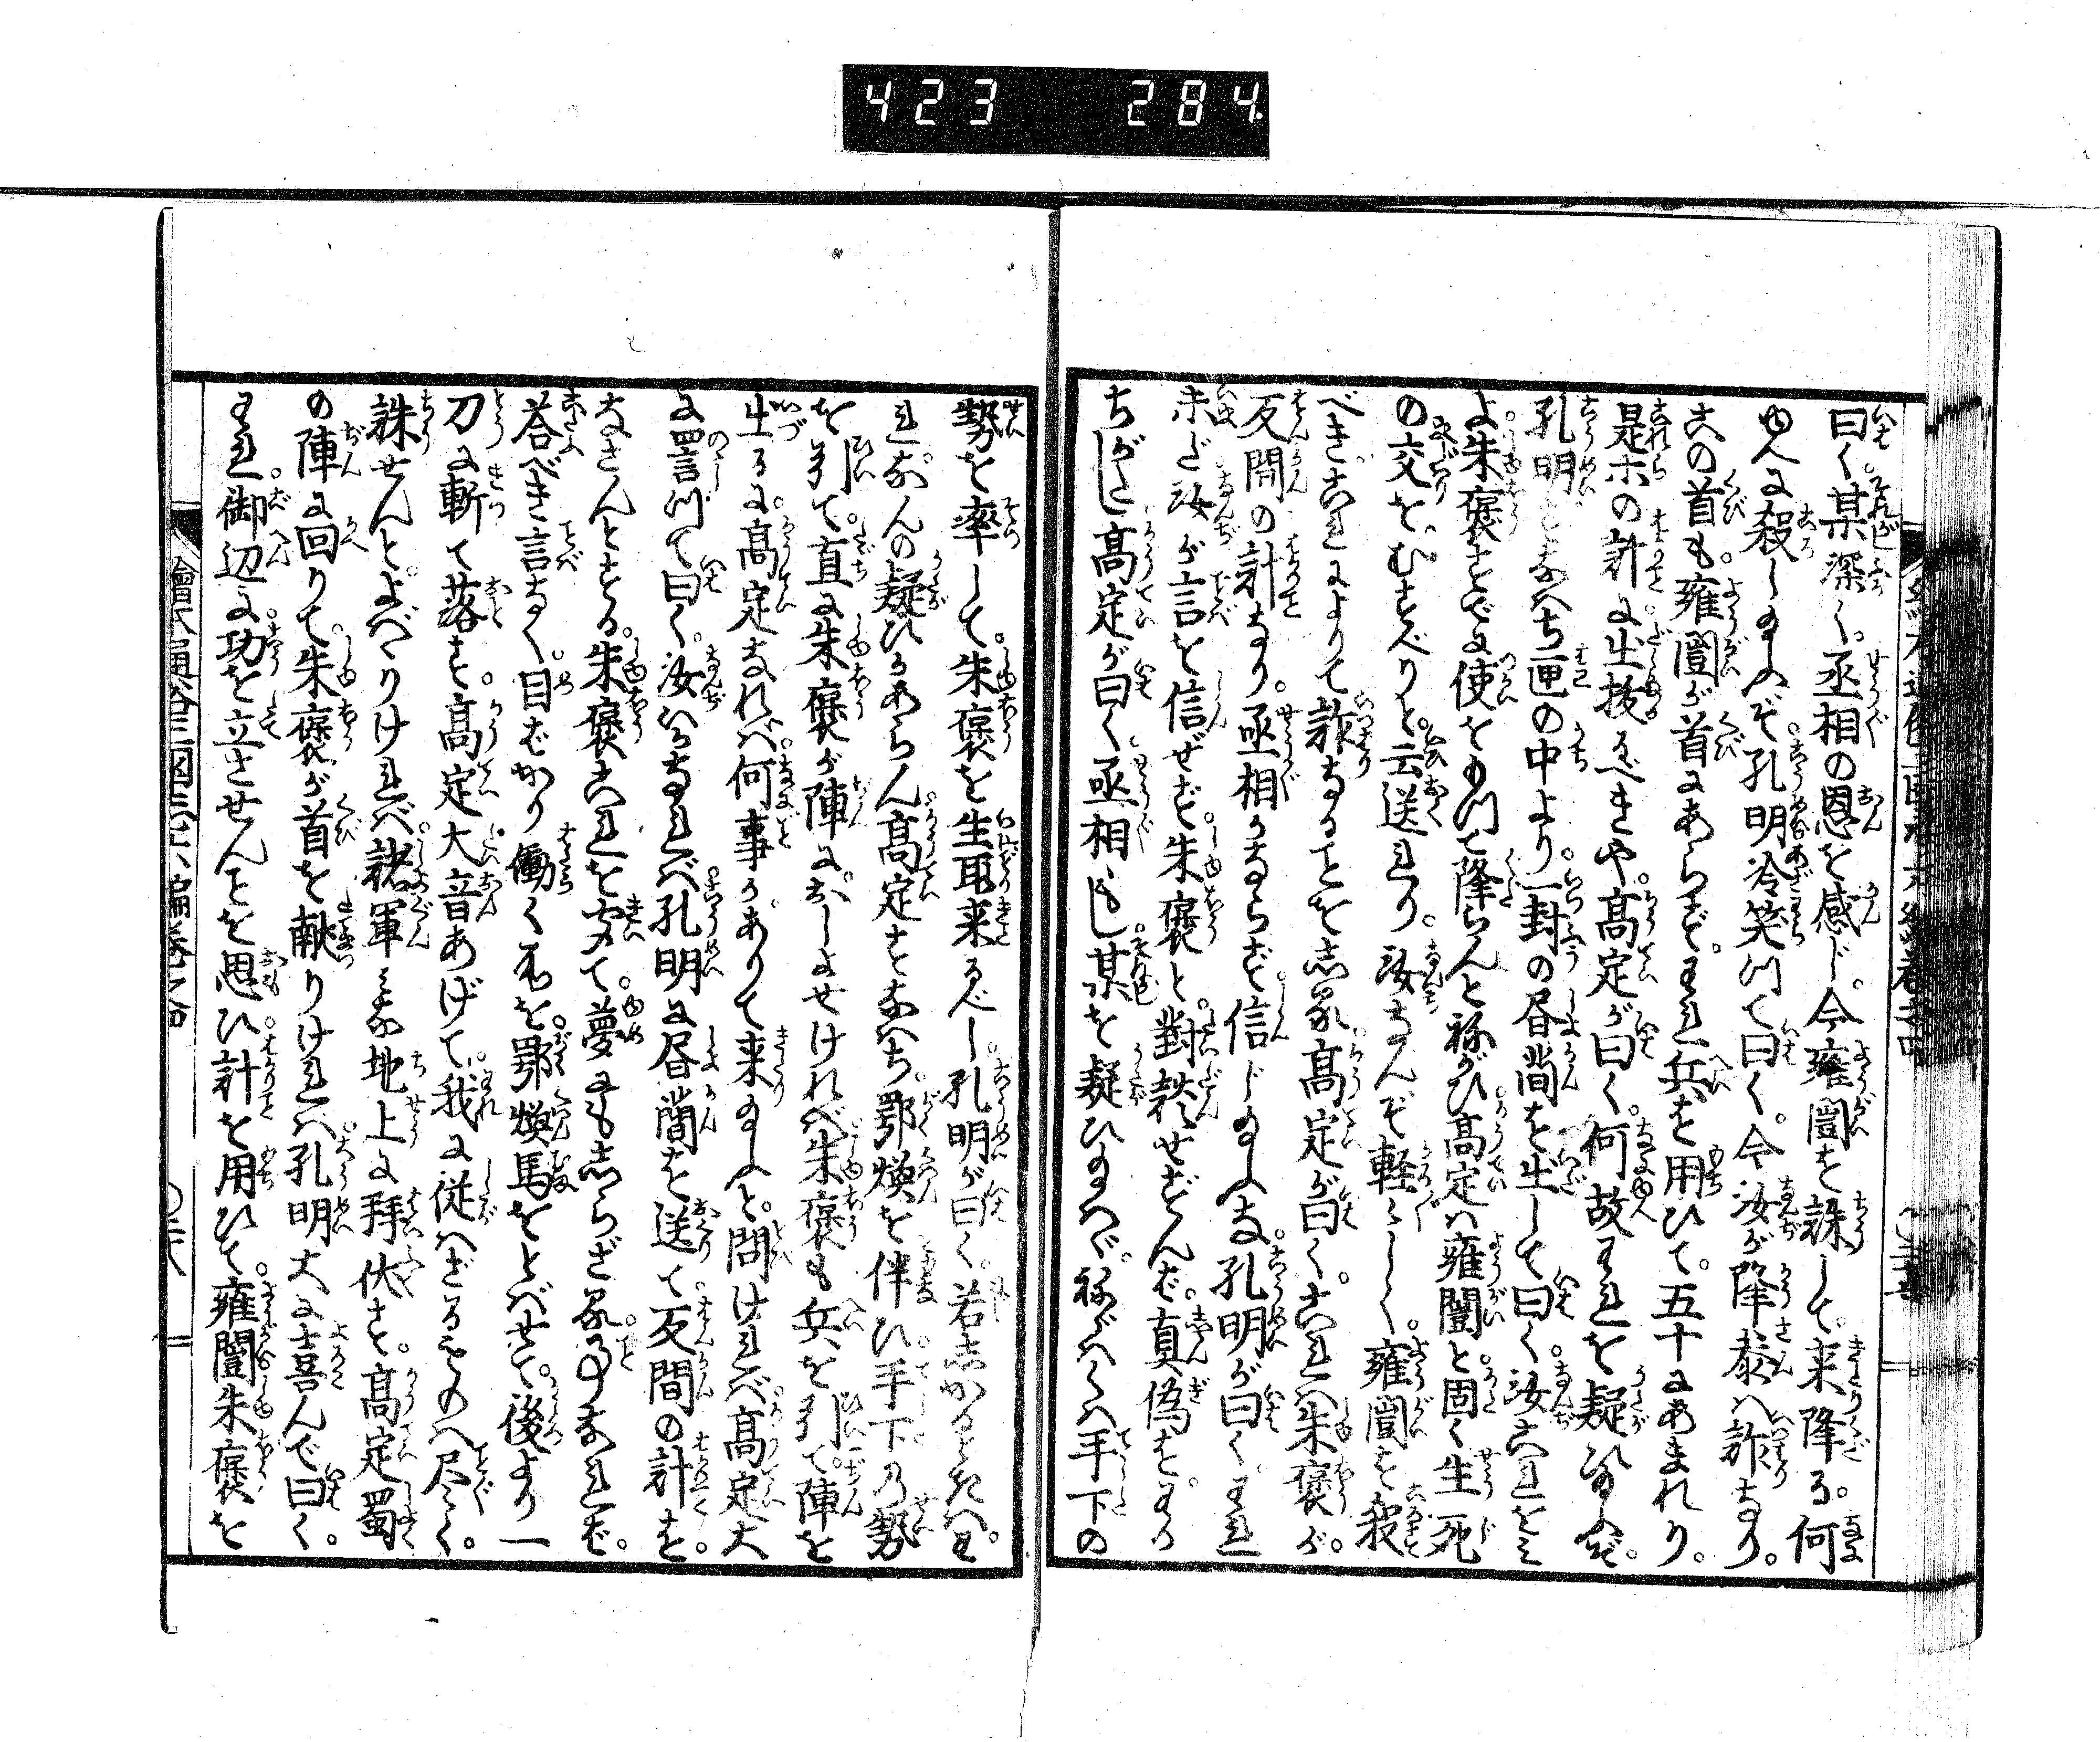 423 284
曰く某深く丞相の恩を感じ今雍闓を誅して来降る何
ゆへに殺し給ふぞ孔明冷笑つて曰く今汝が降参ハ詐なり
この首も雍闓が首にあらずわれ兵を用ひて五十にあまれり
是ホの計に出抜るべきや髙定が曰く何故われを疑ひ給ふぞ
孔明すなハち匣の中より一封の書簡を出して曰く汝これをミ
よ朱褒すでに使をもつて降らんと祢がひ髙定ハ雍闓と固く生死
の交をむすべりと云送れり汝なんぞ軽々しく雍闓を殺
べきこれによりて詐なることを志る髙定が曰くこれハ朱褒が
反間の計なり丞相かならず信じ給ふな孔明が曰くわれ
未ど汝が言を信ぜず朱褒と對談せずんバ真偽をわか
ちがたし髙定が曰く丞相もし某を疑ひ給ハヾ祢がハくハ手下の
勢を率して朱褒を生取来るべし孔明が曰く若志かるときハわ
れなんの疑ひかあらん髙定すなハち鄂煥を伴ひ手下の勢
を引て直に朱褒が陣におしよせけれバ朱褒も兵を引て陣を
出るに髙定なれバ何事かありて来給ふと問けれバ髙定大
に罵つて曰く汝いかなれバ孔明に書簡を送て反間の計を
なさんとする朱褒これを聞て夢にも志らざる事なれバ
荅べき言なく目ばかり働く不を鄂煥馬をとバせて後より一
刀に斬て落す髙定大音あげて我に従ハざるものハ尽く
誅せんとよバりけれバ諸軍ミな地上に拜伏す髙定蜀
の陣に回りて朱褒が首を献りけれバ孔明大に喜んで曰く
われ御辺に功を立させんとを思ひ計を用ひて雍闓朱褒を